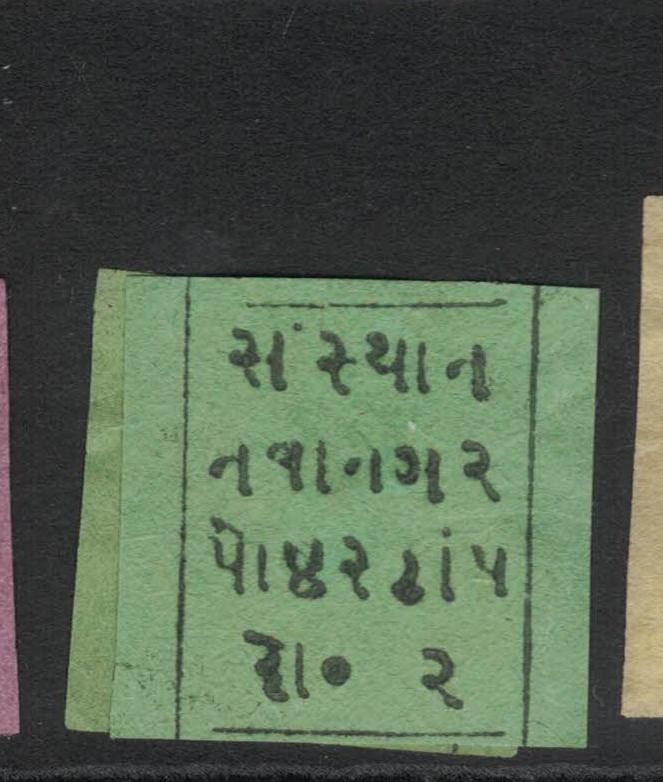 સંસ્થાન
નવાનગર
પોષ્ટસ્ટાંપ
દો૦ ૨